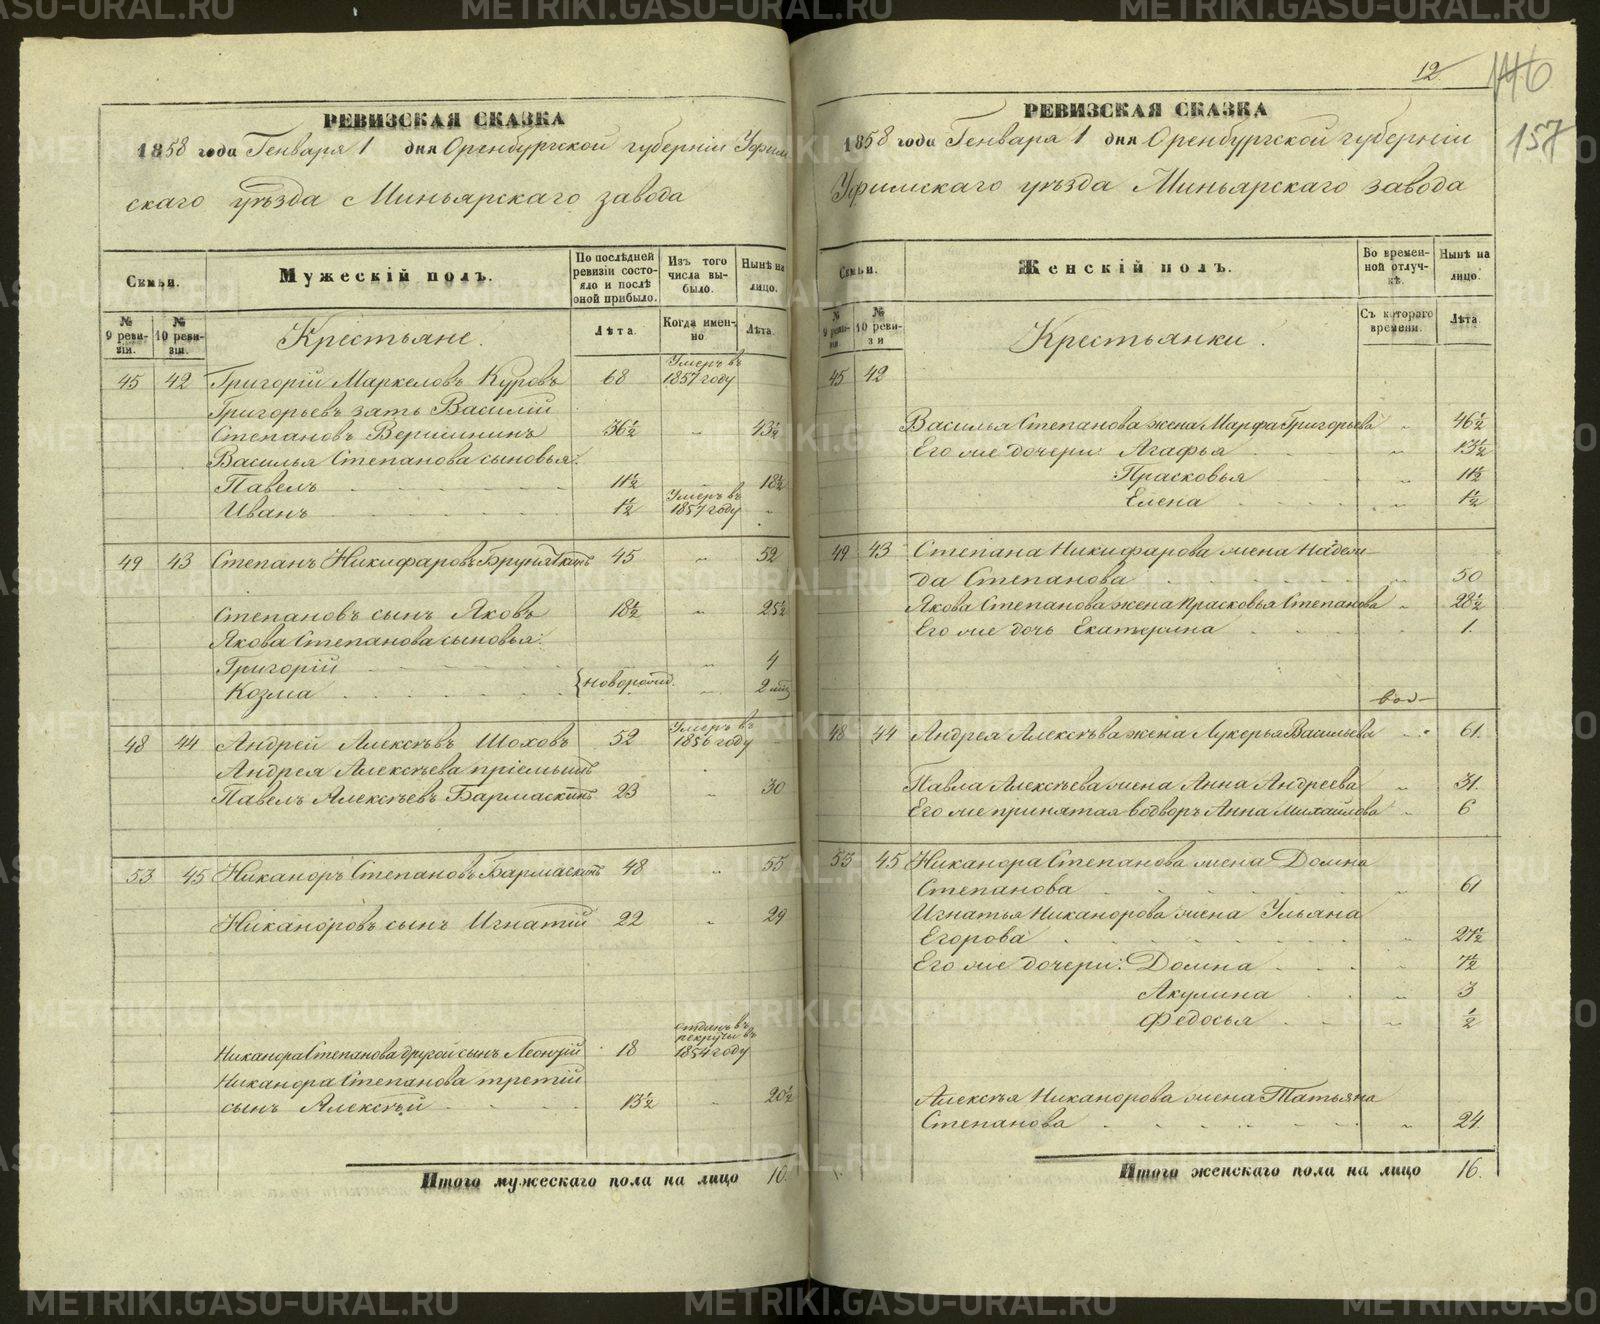 РЕВИЗСКАЯ СКАЗКА
1858 года Генваря 1 дня Оренбургской губерніи Уфим
скаго уѣзда Миньярскаго завода
Семьи.
Мужескій полъ.
По послѣдней ревизіи состояло и послѣ оной прибыло.
Изъ того числа выбыло.
Нынѣ на лицо.
№ 9 ревизіи.
№ 10 ревизіи.
Крестьяне.
Лѣта.
Когда именно
Лѣта.
45 42 Григорій Маркеловъ Куровъ 68 Умеръ въ 1857 году
Григорьевъ зять Василій
Степановъ Вершининъ 36½ " 43½
Василья Степанова сыновья:
Павелъ 11½ " 18½
Иванъ 1½ Умеръ въ 1857 году "
49 43 Степанъ Никифаровъ 45 " 52
Степановъ сынъ Яковъ 18½ " 25½
Якова Степанова сыновья:
Григорій " 4
Козма новорожд. " 2 мѣс
48 44 Андрей Алексѣевъ Шоховъ 52 Умеръ въ 1856 году
Андрея Алексѣева пріемышъ "
Павелъ Алексѣевъ Бармаскинъ 23 " 30
53 45 Никаноръ Степановъ Бармаскинъ 48 " 55
Никаноровъ сынъ Игнатій 22 " 29
Никанора Степанова другой сынъ Леонтій 18 отданъ въ рекруты въ 1854 году
Никанора Степанова третій
сынъ Алексѣй 13½ " 20½
Итого мужескаго пола на лицо 10.
12
146
157
РЕВИЗСКАЯ СКАЗКА
1858 года Генваря 1 дня Оренбургской губерніи
Уфимскаго уѣзда Миньярскаго завода
Семьи.
Женскій полъ.
Во временной отлучкѣ.
Нынѣ на лицо.
№ 9 ревизіи
№ 10 ревизи
Крестьянки.
Съ котораго времени.
Лѣта.
45 42
Василья Степанова жена Марфа Григорьева " 46½
Его же дочери: Агафья " 13½
Прасковья " 11½
Елена " 1½
49 43 Степана Никифарова жена Надеж-
да Степанова " 50
Якова Степанова жена Прасковья Степанова " 28½
Его же дочь Екатерина 1.
вод
48 44 Андрея Алексѣва жена Лукерья Васильева " 61.
Павла Алексѣева жена Анна Андреева " 31.
Его же принятая водворъ Анна Михайлова " 6
53 45 Никанора Степанова жена Домна
Степанова " 61
Игнатья Никанорова жена Ульяна
Егорова " 27½
Его же дочери: Домна " 7½
Акулина " 3
Федосья " ½
Алексѣя Никанорова жена Татьяна
Степанова " 24
Итого женскаго пола на лицо 16.
METRIKI.GASO-URAL.RU